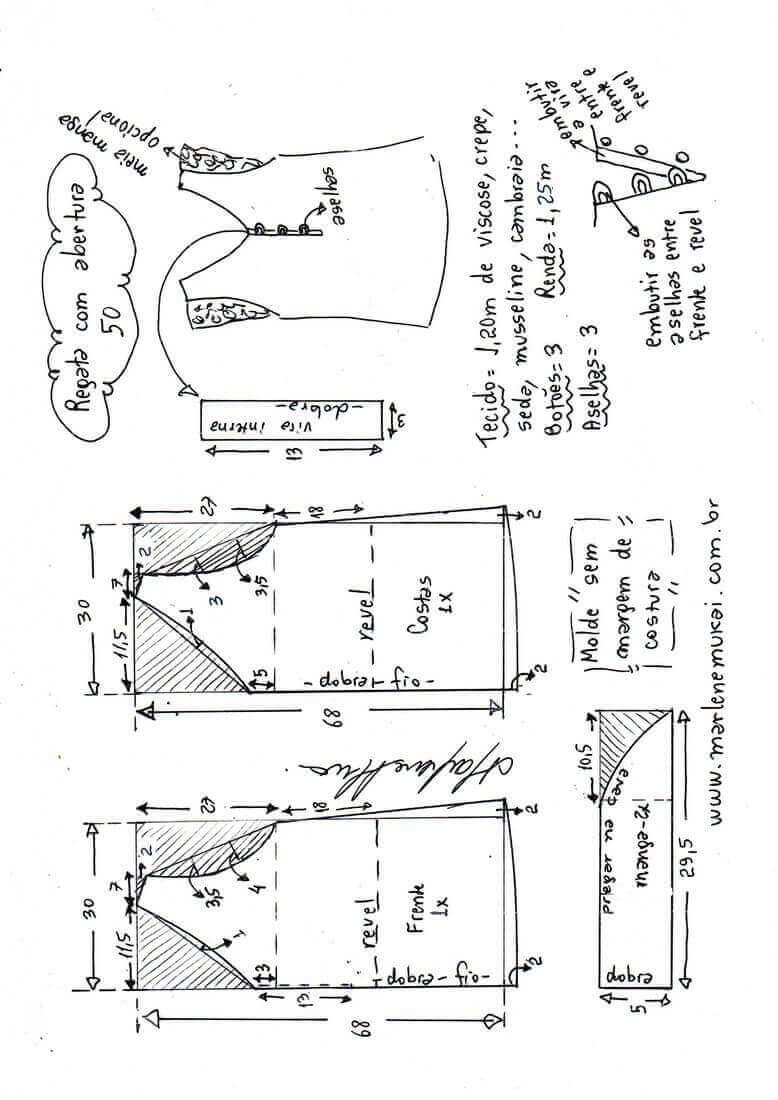 Regata com abertura
50
meia manga
opcional
aselhas
vira interna
-dobra-
13
3
Tecido= 1,20m de viscose, crepe,
seda, musseline, cambraia...
Botões= 3 Renda= 1,25m
Aselhas= 3
embutir
a vira
entre
frente e
revel
embutir as
aselhas entre
frente e revel
30
11,5
7
2
27
18
1
3
3,5
5
68
revel
Costas
1X
-fio-dobra-
2
2
30
11,5
7
2
27
18
1
3,5
4
3
13
68
revel
Frente
1X
-fio-dobra
2
2
Molde "sem
margem de"
costura
10,5
pregar na cava
manga-2x
dobra
5
29,5
www.marlenemukai.com.br